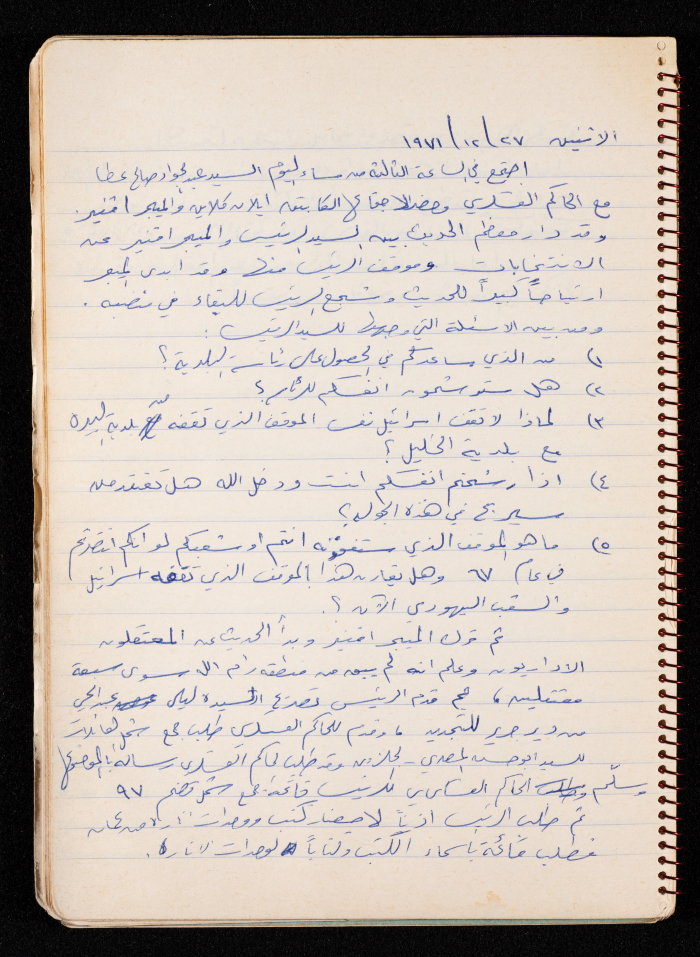 الاثنين ٢٧/١٢/١٩٧١
اجتمع في الساعة الثالثة من مساء اليوم السيد عبد الجواد صالح عطا
مع الحاكم العسكري وحضر الاجتماع الكابتن ايلان كلاين والميجر افنير.
وقد دار معظم الحديث بين السيد الرئيس والميجر افنير عن
الانتخابات وموقف الرئيس منها وقد ابدى الميجر
ارتياحاً كبيراً للحديث وشجع الرئيس للبقاء في منصبه.
ومن بين الاسئلة التي وجهها للسيد الرئيس:
١) من الذي ساعدكم في الحصول على رئاسة البلدية؟
٢) هل سترشحون انفسكم للرئاسة؟
٣) لماذا لا تقف اسرائيل نفس الموقف الذي تقفه مع بلدية البيرة
مع بلدية الخليل؟
٤) اذا رشحتم انفسكم انت ودخل الله هل تعتقد من
سيربح في هذه الجولة؟
٥) ما هو الموقف الذي ستقفونه انتم او شعبكم لو انكم انتصرتم
في عام ٦٧ وهل يقارن هذا بالموقف الذي تقفه اسرائيل
والشعب اليهودي الآن؟.
ثم ترك الميجر افنير وبدأ الحديث عن المعتقلون
الاداريون وعلم انه لم يبق من منطقة رام الله سوى سبعة
معتقلين، ثم قدم الرئيس تصريح السيدة ليلى عبد الحي
من دير جرير للتجديد، وقدم للحاكم العسكري طلب جمع شمل لعائدات
للسيد ابو حسن المصري - الجلزون وقد طلب الحاكم العسكري رسالة بالموضوع
وسلّم الحاكم العسكري للرئيس قائمة جمع شمل تضم ٩٧
ثم طلب الرئيس اذناً لاحضار كتب ووحدات انارة من عمان
فطلب قائمة باسماء الكتب وكتاباً لوحدات الانارة.